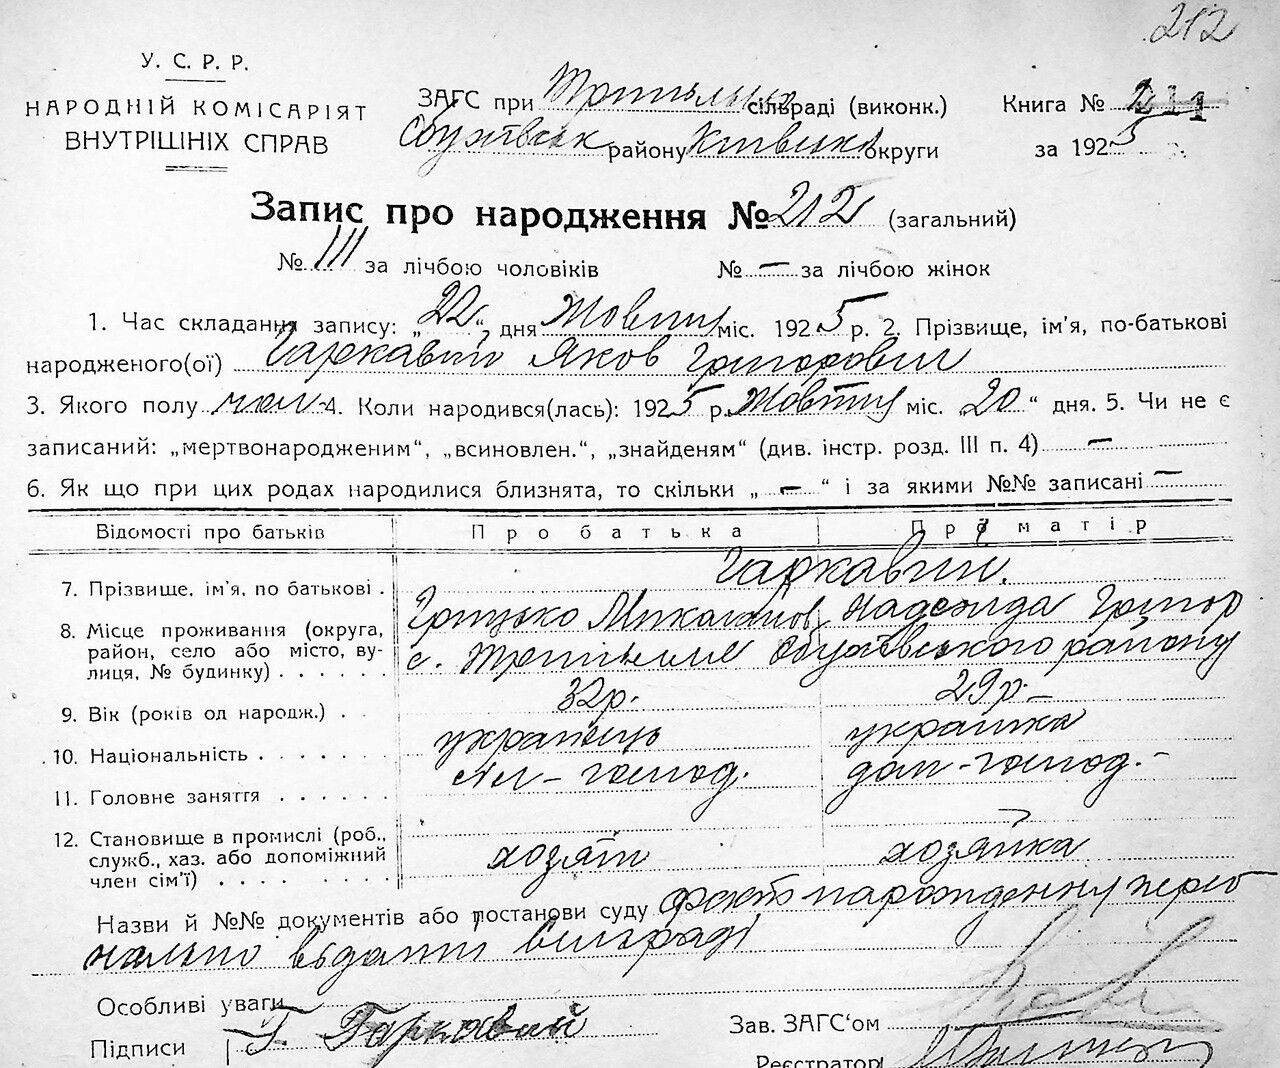 212
У. С. Р. Р.
НАРОДНІЙ КОМІСАРІЯТ
ВНУТРІШНІХ СПРАВ
ЗАГС при сільраді (виконк.)
району Київськ округи
Книга № 211
за 1925
Запис про народження № 212 (загальний)
№ 111 за лічбою чоловіків № — за лічбою жінок
1. Час складання запису: „22“ дня Жовтня міс. 1925 р. 2. Прізвище, ім'я, по-батькові
народженого(ої) Гаркавий Яков Григорович
3. Якого полу чол 4. Коли народився(лась): 1925 р. Жовтня міс. „20“ дня. 5. Чи не є
записаний: „мертвонародженим“, „всиновлен.“, „знайденям“ (див. інстр. розд. III п. 4) —
6. Як що при цих родах народилися близнята, то скільки „ — “ і за якими №№ записані —
Відомості про батьків Про батька Про матір
7. Прізвище, ім'я, по батькові . Гаркавий.
Грицько Надежда Григор
8. Місце проживання (округа, район, село або місто, вулиця, № будинку) . . . . . . с. Обухівського району
9. Вік (років од народж.) . . 32р. 29р. —
10. Національність . . . . . . . українець украинка
11. Головне заняття . . . . . . господ. дом-господ. -
12. Становище в промислі (роб., служб., хаз. або допоміжний член сім'ї) . . . . . . . . хозяїн хозяйка
Назви й №№ документів або постанови суду народження
сільраді
Особливі уваги
Підписи Г. Гаркавий
Зав. ЗАГС‘ом
Реєстратор